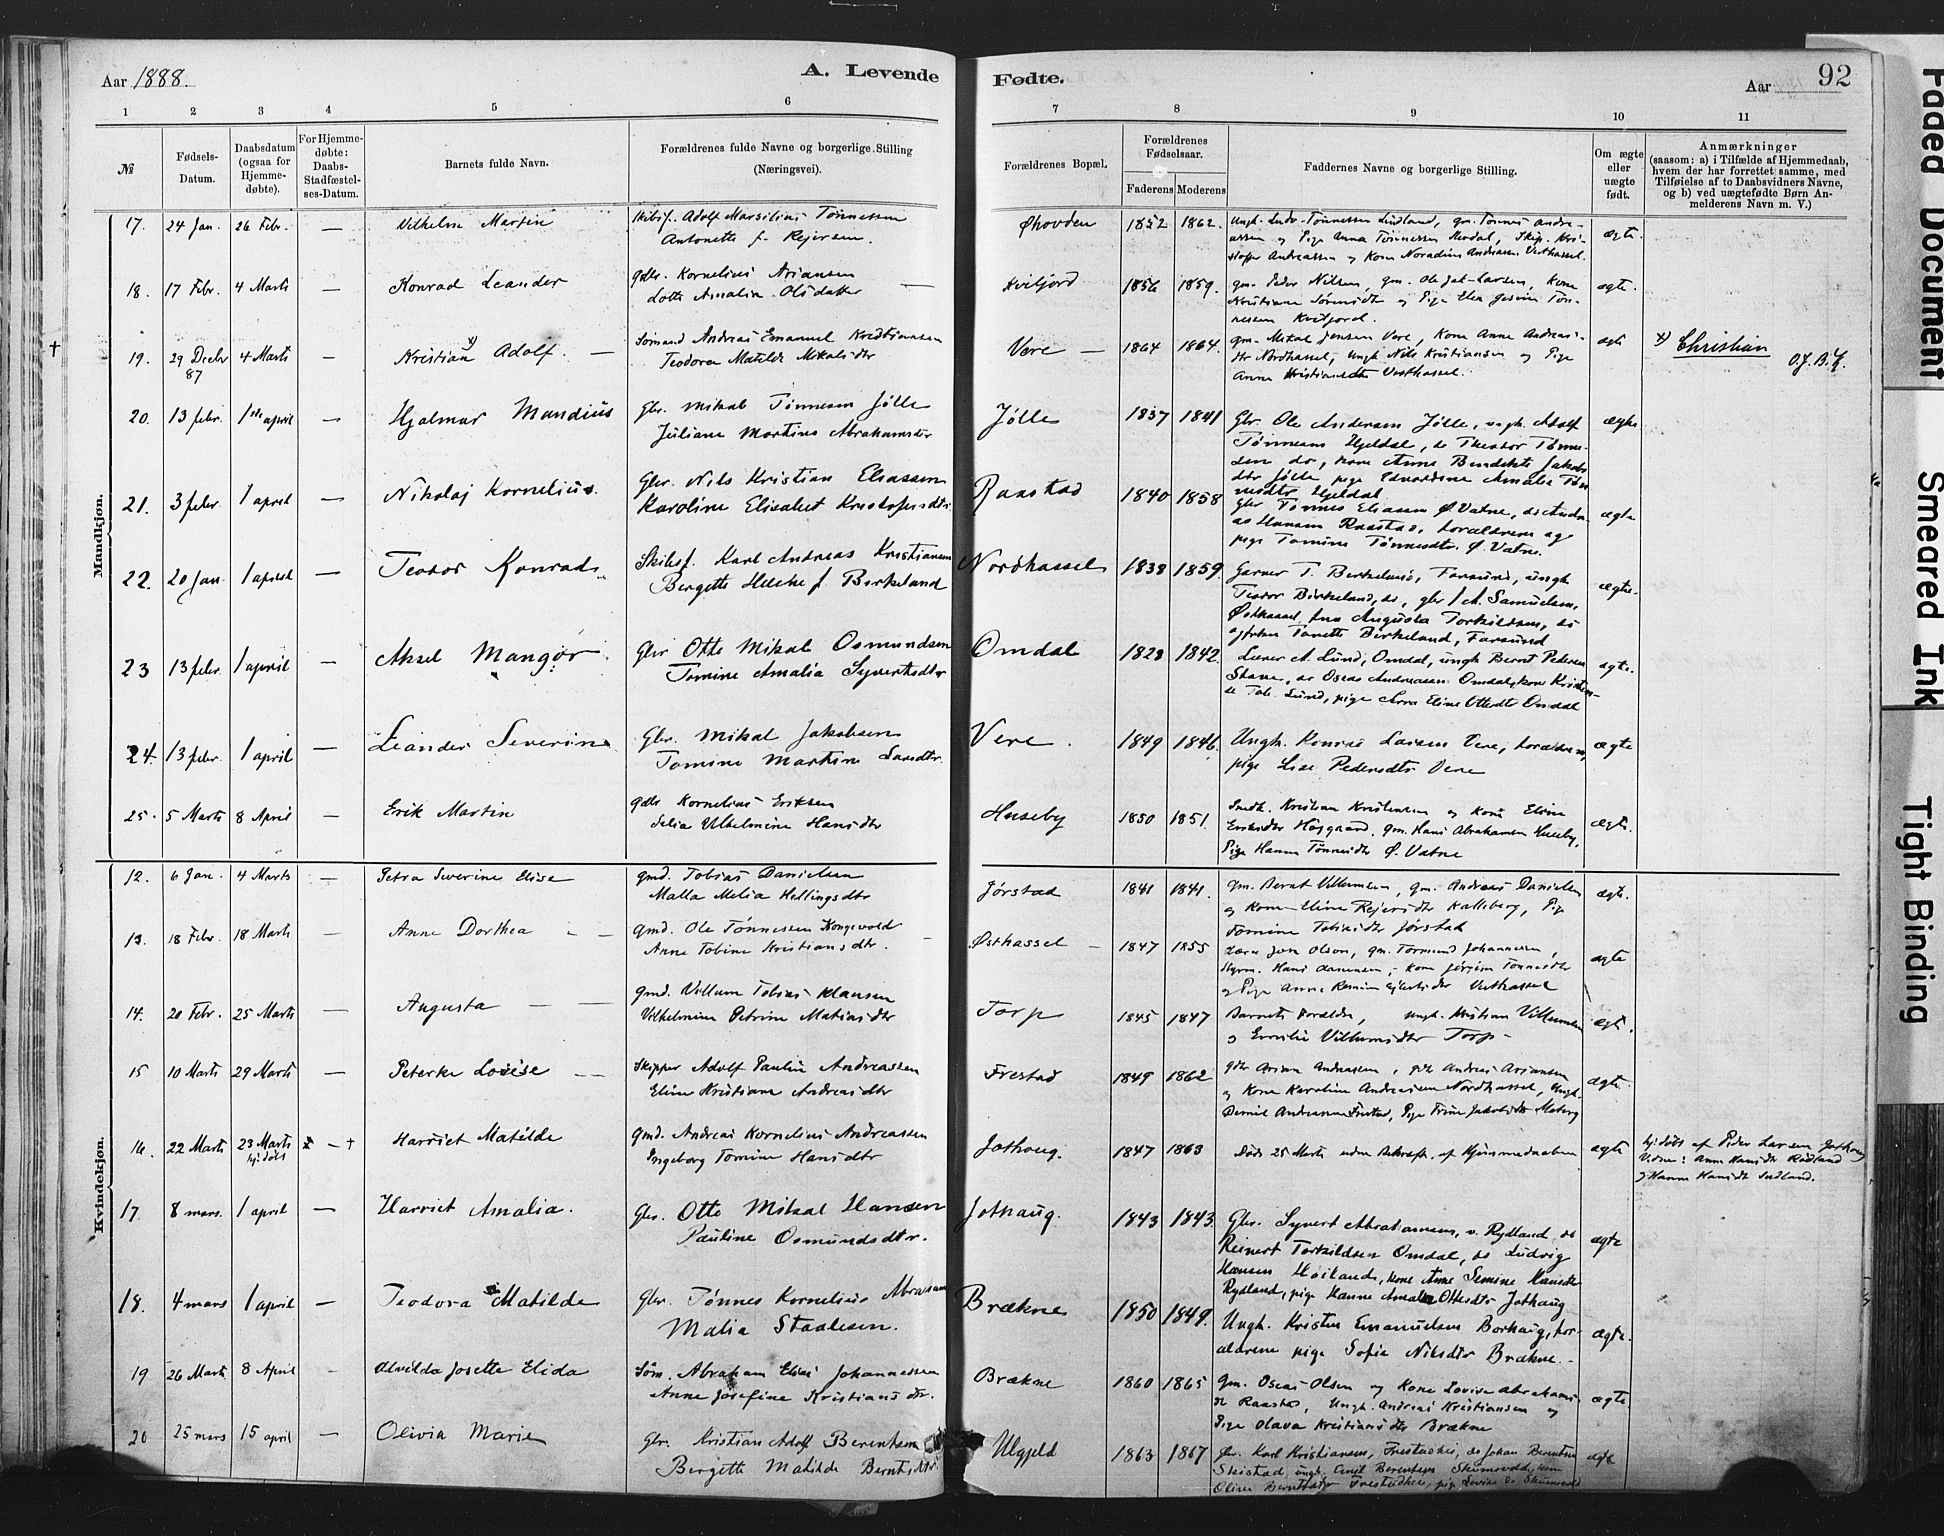 Aar 1888.
A. Levende
Fødte.
Aar
92
1 2 3 4 5 6 7 8 9 10 11
№
Fødsels-
Datum.
Daabsdatum
(ogsaa for
Hjemme-
døbte).
For Hjemme-
døbte:
Daabs-
Stadfæstel-
ses-Datum.
Barnets fulde Navn.
Forældrenes fulde Navne og borgerlige Stilling
(Næringsvei).
Forældrenes Bopæl.
Forældrenes
Fødselsaar.
Faderens Moderens
Faddernes Navne og borgerlige Stilling.
Om ægte
eller
uægte
født.
Anmærkninger
(saasom: a) i Tilfælde af Hjemmedaab,
hvem der har forrettet samme, med
Tilføielse af to Daabsvidners Navne,
og b) ved uægtefødte Børn An-
melderens Navn m. V.)
Mandkjøn.
17. 24 Jan. 26 Febr. — Vilhelm Martin
Adolf Marsilius Tønnessen
Antonette f. Rejersen.
Øhovden 1852 1862.
ægte.
18. 17 Febr. 4 Marts — Konrad Leander
Kornelius Ariansen
Lotte Amalia Olsdatter
Kviljord 1856 1859.
gm. Peder Nilsen, gm. Ole Jak. Larsen, Kone
ægte.
†
19. 29 Decbr 87 4 Marts — Kristian x) Adolf. —
Sømand Andreas Emanuel Kristiansen
Teodora Matilde Mikalsdtr
Vere — 1864 1864.
gm. Mikal Jensen Vere, Kone Anne Andreas-
dtr Nordhassel, Ungk. Nils Kristiansen og Pige
Anna Kristiansdtr Vesthassel.
ægte
x) Christian
O.J.B.K.
20. 13 febr. 1ste april — Hjalmar Mandius
Gbr. Mikal Tønnesen Jølle
Juliane Martine Abrahamsdtr
Jølle 1837 1841
Gbr. Ole Andersen Jølle, ungk. Adolf
Tønnesen Hjeldal, do Theodor Tønne-
sen do, kone Anne Bendikte Jakobs
dtr Jølle pige Edvardine Amalie Tøn
nesdtr Hjeldal
ægte
21. 3 febr. 1 april — Nikolaj Kornelius.
Gbr. Nils Kristian Eliassen
Karoline Elisabet Kristofersdtr
Raastad 1840 1858
Gbr Tønnes Eliassen Ø. Vatne, do Andre-
as Hansen Raastad, forældrene og
pige Tomine Tønnesdtr. Ø. Vatne.
ægte
22. 20 jan. 1 april — Teodor Konrad.
Skibsf. Karl Andreas Kristiansen
Bergette Helene f. Birkeland
Nordhassel 1838 1859
Garver T. Birkeland, Farsund, ungk
Teodor Birkeland, do, gbr A. Samuelsen,
Østhassel, fru Augusta Torkildsen, do
og frøken Tonette Birkeland, Farsund
ægte.
23 13 febr. 1 april — Aksel Mangor
Gbr Otte Mikal Osmundsen
Tomine Amalia Syvertsdtr
Omdal 1828 1842.
Lærer A. Lund, Omdal, ungk Bernt Pedersen
Stave, do Oscar Andreassen Omdal, kone Kristen-
se Tob. Lund, pige Anne Eline Ottesdtr Omdal
ægte.
24. 13 febr. 1 april — Leander Severin
Gbr. Mikal Jakobsen
Tomine Martine Larsdtr.
Vere. 1849 1846.
Ungk. Konrad Larsen Vere, forældrene,
pige Lise Pedersdtr Vere
ægte
25. 5 Marts 8 April — Erik Martin
Kornelius Eriksen
Selia Vilhelmine Hansdtr
Huseby 1850 1851.
Kristian Kristensen og kone Eline
gm. Hans Abrahamsen Huseby,
Pige Hanna Tønnesdtr Ø. Vatne
ægte.
Kvindekjøn.
12. 6 Jan. 4 Marts — Petra Severine Elise
gmd. Tobias Danielsen
Malla Melia Hellingsdtr
Jørstad 1841 1841.
gm. Bernt Villumsen, gm. Andreas Danielsen
og Kone Eline Rejersdtr Kalleberg, Pige
Tomine Tobiasdtr Jørstad
ægte.
13. 18 Febr. 18 Marts — Anne Dorthea
gmd. Ole Tønnessen Kongevold
Anne Tobine Kristiansdtr.
Østhassel — 1847 1855
Lærer Olson, gm. Tormund Johannesen,
ægte
14. 20 Febr. 25 Marts — Augusta — —
gmd. Villum Tobias Klausen
Vilhelmine Petrine Matiasdtr
Torp 1845 1847
Barnets Forældre, Ungk. Kristian Villumsen
og Emilie Villumsdtr Torp —
ægte.
15 10 Marts 29 Marts — Peterke Lovise — —
Skipper Adolf Paulin Andreassen
Eline Kristiane Andreasdtr
Frestad 1849 1862
Arian Andreassen, Andreas Ariansen
og Kone Karoline Andreassen Nordhassel, Ungk.
Andreassen Frestad, Pige Trine Jakobsdtr Meberg
ægte.
16. 22 Marts 23 Marts hj.døbt — † Harriet Matilde
gmd. Andreas Kornelius Andreassen
Ingeborg Tomine Hansdtr
Jothaug. 1847 1863
Døde 25 Marts uden Bekræft. af Hjemmedaaben
ægte
hj.døbt af Peder Larsen Jothaug
Vidne: Anne Hansdtr Rødland
og Hanne Hansdtr Indland.
17. 8 mars. 1 april — Harriet Amalia.
Gbr. Otte Mikal Hansen
Pauline Osmundsdtr.
Jothaug. 1843 1843.
Gbr. Syvert Abrahamsen, v. Rydland, do
Reinert Torkildsen Omdal, do Ludvig
Hansen Høiland, kone Anne Semine Hansdtr
Rydland, pige Hanne Amalia Ottesdtr Jothaug
ægte
18. 4 mars 1 april — Teodora Matilde
Gbr. Tønnes Kornelius Abrasen
Malia Staalesen.
Brækne 1850 1849.
Ungk. Kristen Emanuelsen Borhaug, for-
ældrene pige Sofie Nilsdtr Brækne.
ægte.
19 26 Marts 8 April — Alvilda Josette Elida
Søm. Abraham Elias Johannessen
Anne Josefine Kristiansdtr.
Brækne 1860 1865
gm. Oscar Olsen og Kone Lovise Abrahams-
dtr Raastad, Ungk. Andreas Kristiansen og
Pige Olava Kristiansdtr Brækne
ægte.
20 25 mars 15 april — Olivia Marie
Gbr. Kristian Adolf Berentsen
Bergette Matilde Berntsdtr
Ulgjeld 1863 1867
Gbr. Karl Kristiansen, Frestadhei, do Johan Berentsen
Skeistad, ungk. Berentsen Skumsvold, kone
Oline Berntsdtr Frestadhei, pige Lovise do Skumsvold
ægte
Faded Document
Smeared Ink
Tight Binding